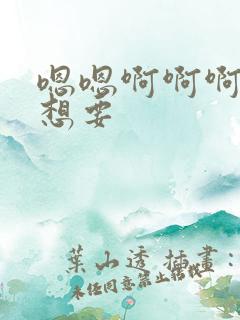 嗯嗯啊啊啊
想要
葉山透 插畫：
未任同意禁止搭載